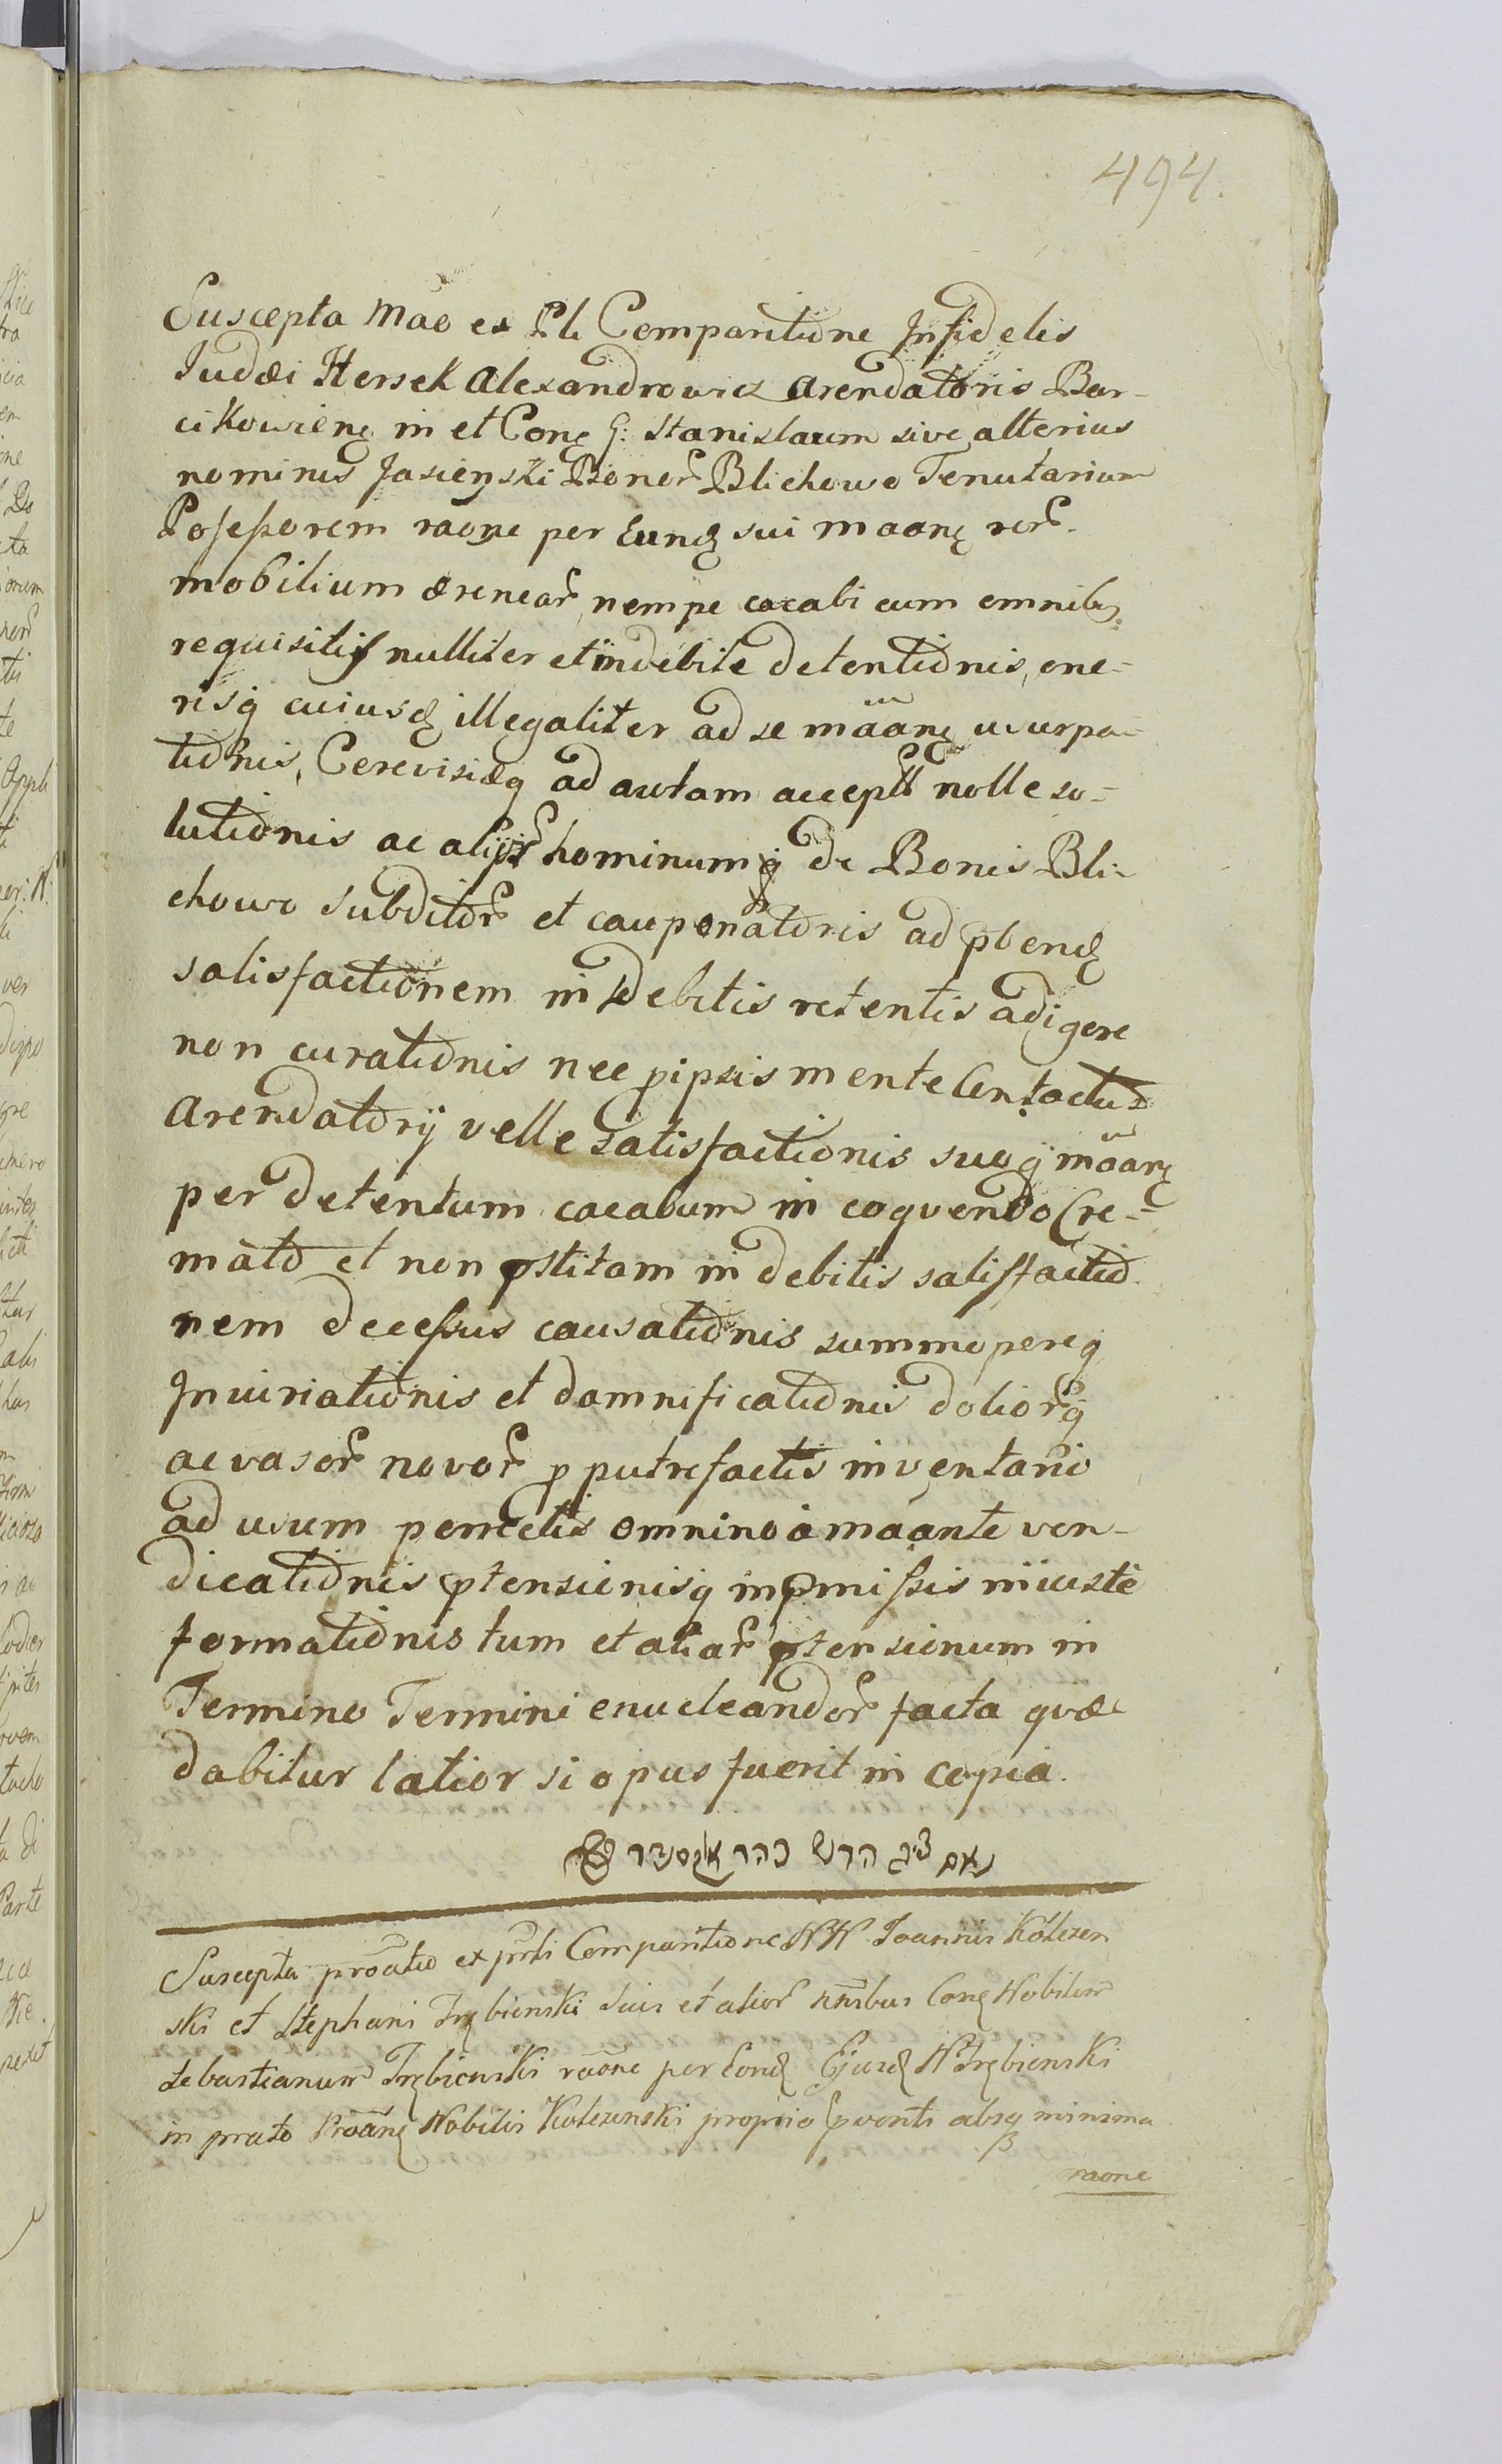 494.
Suscepta Mão ex Pti Comparitione Infidelis
Iudæi Hersek Alexandrowicz Arendatoris Bar-
cikowień in et Con G: Stanislaum sive alterius
nominis Jasieński Bonor Blichowo Tenutarium
Possessorem raone per Eund sui maan rer
mobilium ærenear nempe cacabi cum omnibs
requisitis nulliter et indebite detentionis, one-
risq cuiusd illegaliter ad se māan usurpa-
tionis, Cerevisiæq ad aulam accept nolle so-
lutionis ac alijor hominumq de Bonis Bli-
chowo Subditor et cauponatoris ad pbend
satisfactionem in debitis retentis adigere
non curationis nec p ipsis mente Contactus
Arendatorij velle satisfactionis suoq māan
per detentum cacabum in coquendo Cre-
mato et non pstitam in debitis satisfactio
nem decessus causationis summopereq
Iniuriationis et damnificationis doliorq
ac vasor novor p putrefactis inventario
ad usum permetis omnino à maante ven-
dicationis ptensionisq in pmissis iniuste
formationis tum et aliar ptensionum in
Termino Termini enucleandor facta quæ
dabitur latior si opus fuerit in copia.
נאם הירש אלכסנדר
Suscepta proatio ex pnti Comparitione NN Joannis Kolczen
ski et Stephani Trębienski suis et alior nnibus Con Nobilem
Sebastianum Trębienski raone per Eond Ejusd N Trębienski
in prato Proan Nobilis Kolczenski proprio absq minima
raone